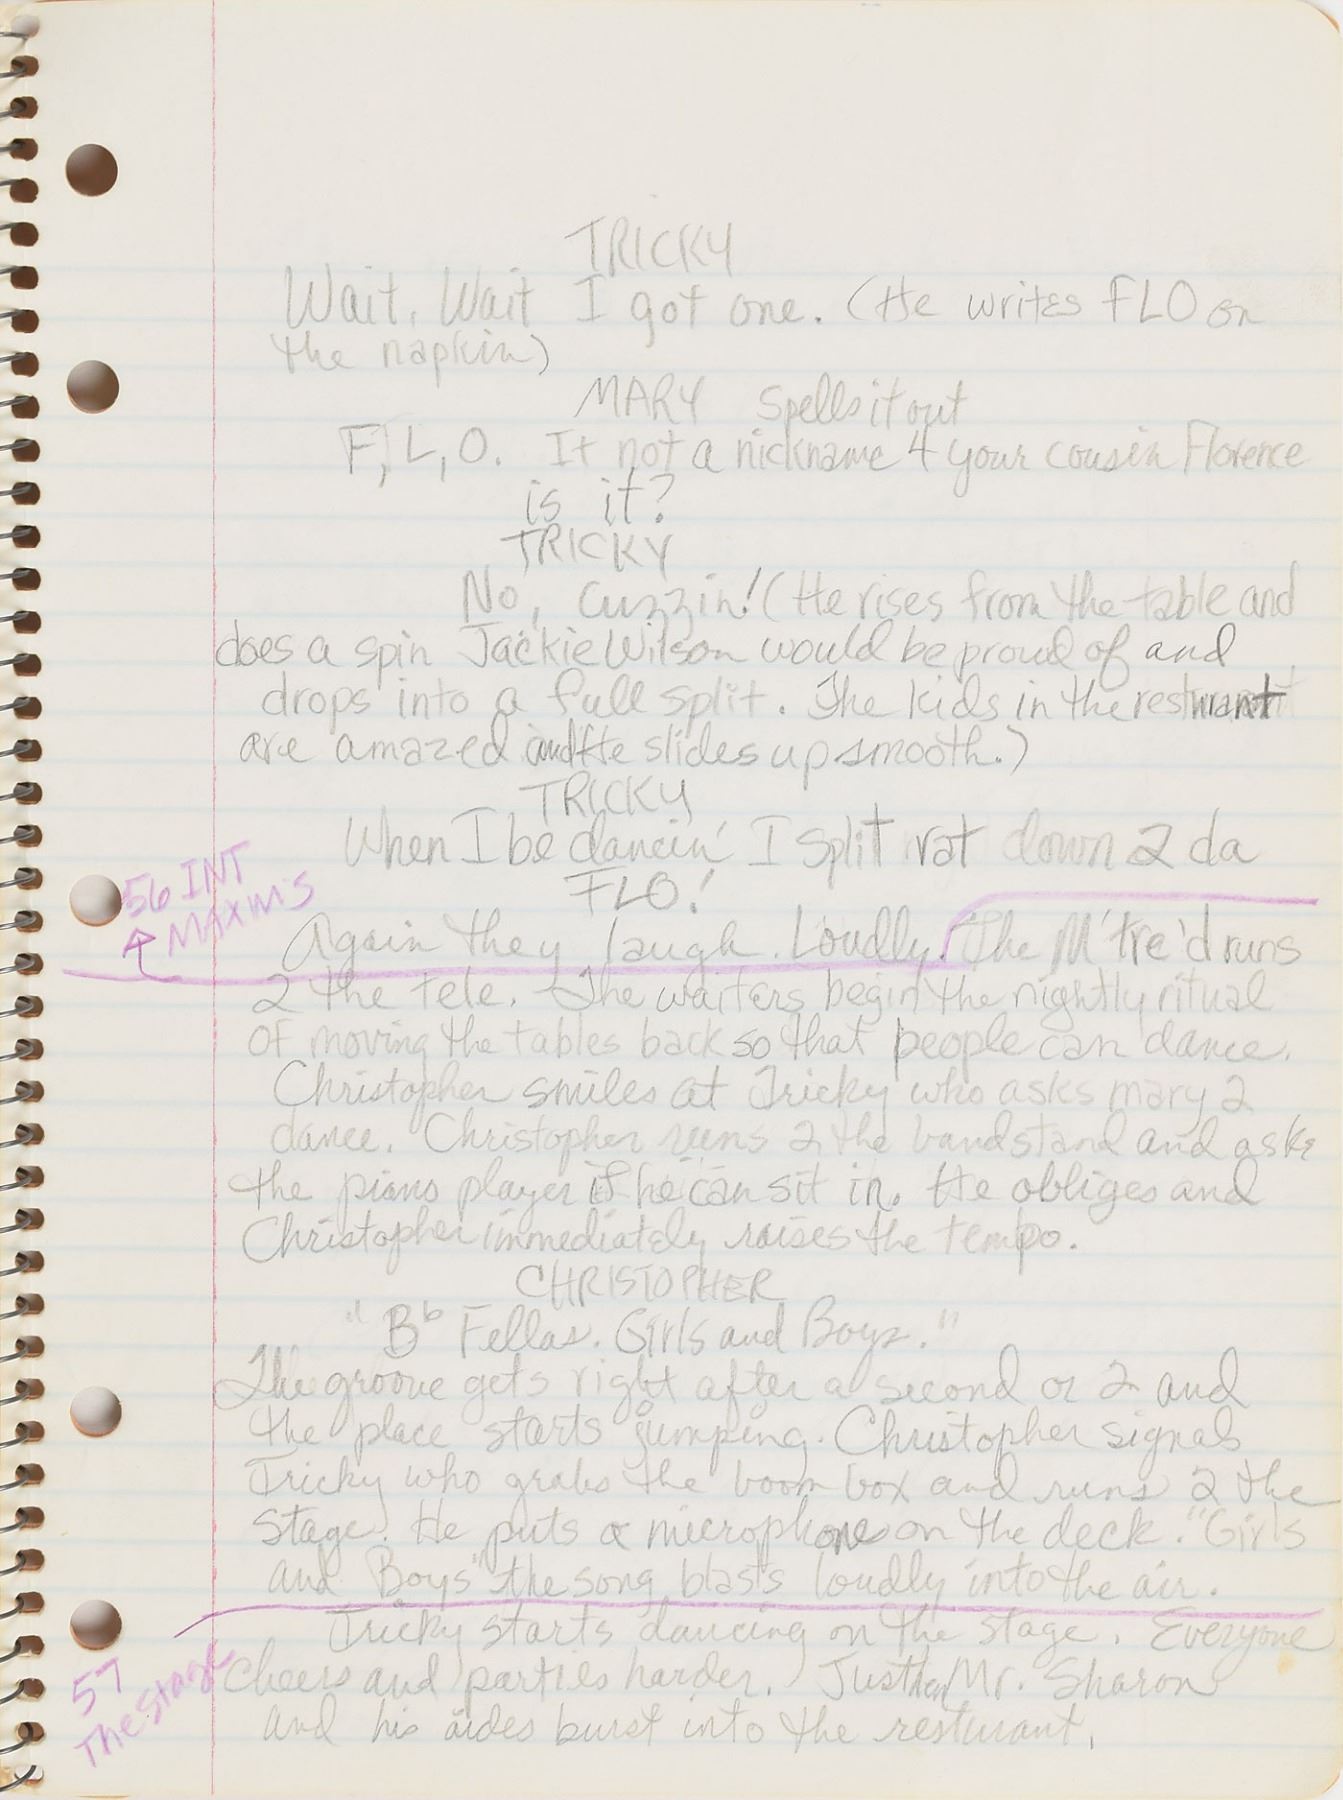 TRICKY
Wait, Wait I got one. (He writes FLO on
the napkin)
MARY Spells it out
F, L, O. It not a nickname 4 your cousin Florence
is it?
TRICKY
No, cuzzin! (He rises from the table and
does a spin Jackie Wilson would be proud of and
drops into a full split. The kids in the resturant
are amazed and He slides up smooth.)
TRICKY
When I be dancin' I split rat down 2 da
FLO!
56 INT
MAXIM'S
Again they laugh. Loudly. The M'tre'd runs
2 the tele. The waiters begin the nightly ritual
of moving the tables back so that people can dance.
Christopher smiles at Tricky who asks mary 2
dance. Christopher runs 2 the bandstand and asks
the piano player if he can sit in. He obliges and
Christopher immediately raises the tempo.
CHRISTOPHER
"Bb Fellas. Girls and Boyz."
The groove gets right after a second or 2 and
the place starts jumping. Christopher signals
Tricky who grabs the boom box and runs 2 the
stage. He puts a microphone on the deck. "Girls
and Boys" the song blasts loudly into the air.
57
The Stage
Tricky starts dancing on the stage. Everyone
cheers and parties harder. Just then Mr. Sharon
and his aides burst into the resturant.